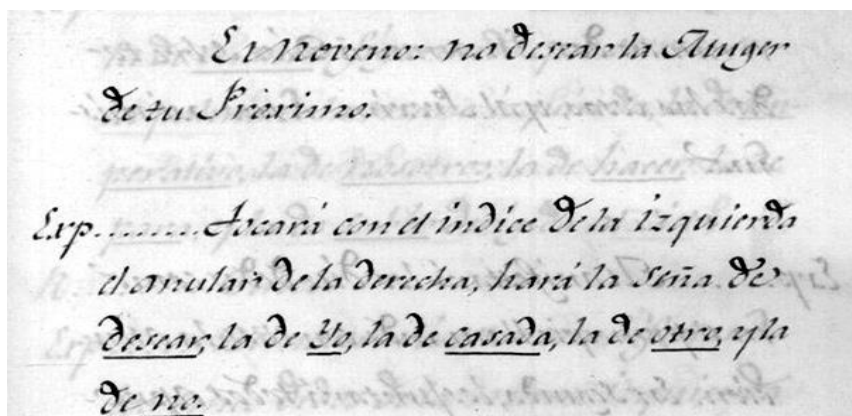 El Noveno: no desear la Muger
de tu Proximo.
Exp...... Tocará con el índice de la izquierda
el anular de la derecha, hará la seña de
desear, la de Yo, la de casada, la de otro, y la
de no.